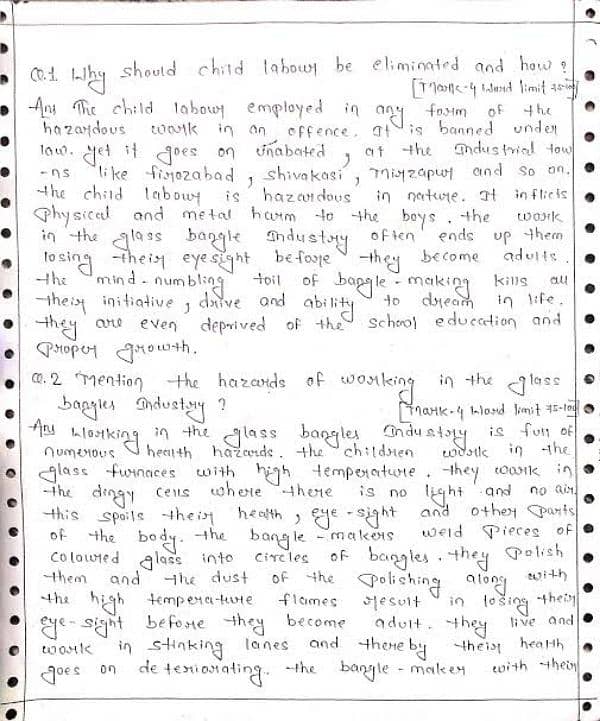 Q.1 Why should child labour be eliminated and how?
[Mark-4 Word limit 75-100]
Ans The child labour employed in any form of the
hazardous work in an offence. It is banned under
law. yet it goes on unabated, at the Industrial tow
-ns like firozabad, Shivakasi, Mirzapur and so on.
the child labour is hazardous in nature. It inflicts
Physical and metal harm to the boys. the work
in the glass bangle Industry often ends up them
losing their eyesight before they become adults.
the mind-numbling toil of bangle-making kills all
their initiative, drive and ability to dream in life.
they are even deprived of the school education and
proper growth.
Q.2 Mention the hazards of working in the glass
bangles Industry?
[Mark-4 Word limit 75-100]
Ans Working in the glass bangles Industry is full of
numerous health hazards. the children work in the
glass furnaces with high temperature. they work in
the dingy cells where there is no light and no air.
this spoils their health, eye-sight and other parts
of the body. the bangle-makers weld pieces of
coloured glass into circles of bangles. they polish
them and the dust of the polishing along with
the high temperature flames result in losing their
eye-sight before they become adult. they live and
work in stinking lanes and thereby their health
goes on deteriorating. the bangle-maker with their